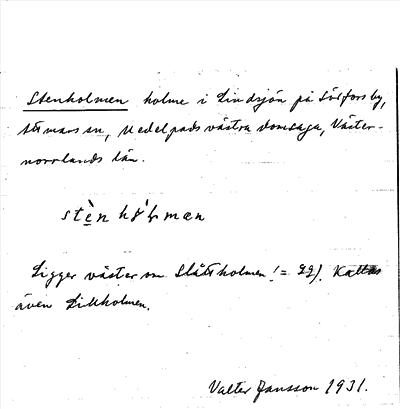 Stenholmen holme i Lindsjön på Sörforsby,
Attmars sn, Medelpads västra domsaga, Väster-
norrlands län.
stènhó̀ɫmen
Ligger väster om Slåttholmen! = 22). Kallas
även Lillholmen.
Valter Jansson 1931.